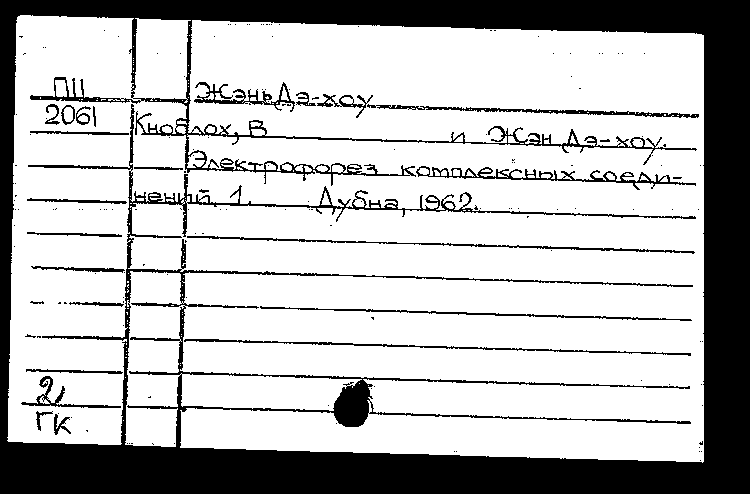 П11 Жэнь Дэ-хоу
2061 Кноблох, В и Жэн Дэ-хоу.
Электрофорез комплексных соеди-
нений. 1. Дубна, 1962.
2,
ГК